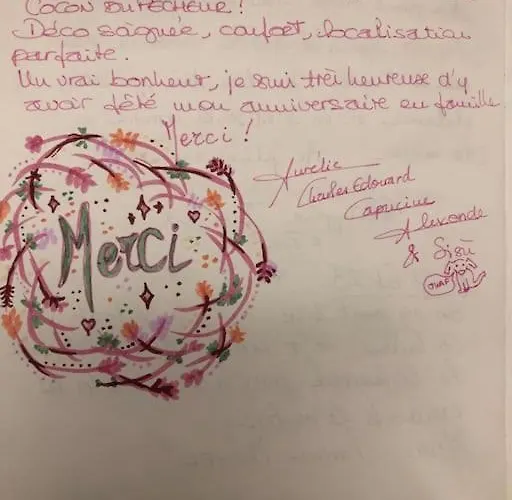 COCON DU PÊCHEUR !
Déco soignée, confort, localisation
parfaite.
Un vrai bonheur, je suis très heureuse d'y
avoir fêté mon anniversaire en famille
Merci !
Aurélie
Charles Edouard
Capucine
Alexandre
& Sisù
OUAF
Merci